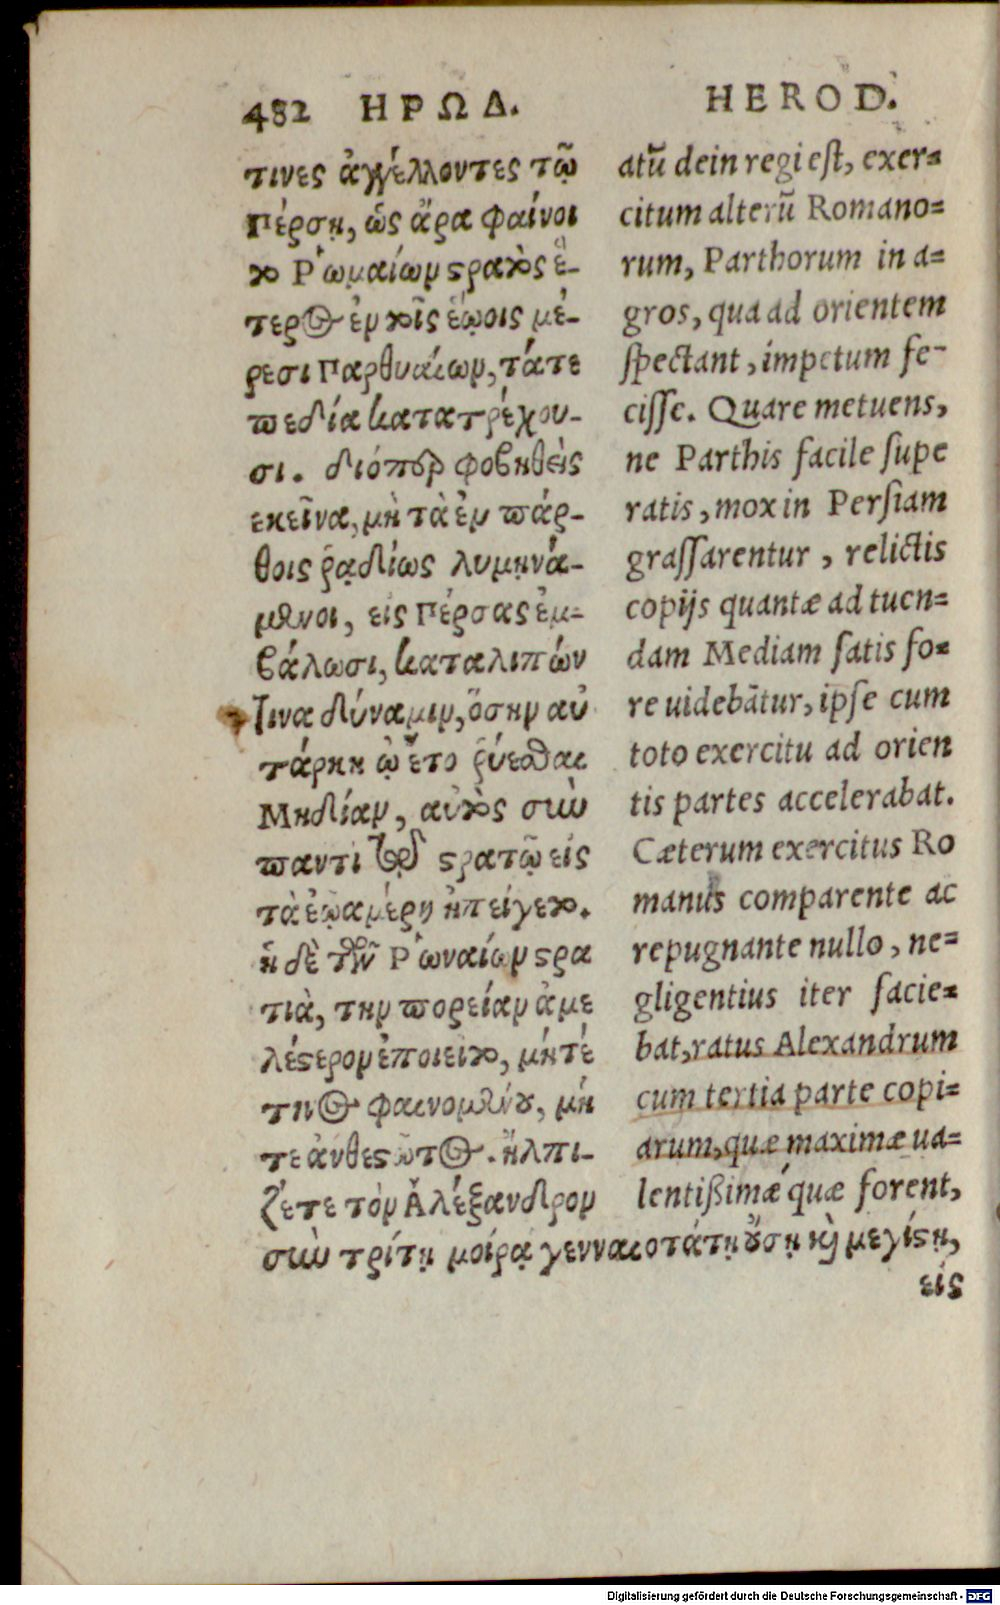 482 ΗΡΩΔ.
τινες ἀγγέλλοντες τῷ
Πέρσῃ, ὡς ἄρα φαίνοι
το Ῥωμαίων στρατὸς ἕ-
τερος ἐν τοῖς ἑῴοις μέ-
ρεσι Παρθυαίων, τάτε
πεδία κατατρέχου-
σι. διόπερ φοβηθεὶς
εκεῖνα, μὴ τὰ ἐν πάρ-
θοις ῥᾳδίως λυμηνά-
μενοι, εἰς Πέρσας ἐμ-
βάλωσι, καταλιπών
τινα δύναμιν, ὅσην αὐ
τάρκη ᾤετο ῥύεσθαι
Μηδίαν, αὐτὸς σὺν
παντὶ τῷ στρατῷ εἰς
τὰ ἑῷα μέρη ἠπείγετο.
ἡ δὲ τῶν Ῥωναίων στρα
τιὰ, την πορείαν ἀμε
λέστερον ἐποιεῖτο, μήτέ
τινος φαινομένου, μή
τε ἀνθεστῶτος. ἤλπι-
ζέτε τὸν Ἀλέξανδρον
σὺν τρίτῃ μοίρᾳ γενναιοτάτῃ οὔσῃ καὶ μεγίστῃ,
εἰς
HEROD.
atū dein regi est, exer=
citum alterū Romano=
rum, Parthorum in a=
gros, qua ad orientem
spectant, impetum fe-
cisse. Quare metuens,
ne Parthis facile supe
ratis, mox in Persiam
grassarentur, relictis
copijs quantæ ad tuen=
dam Mediam satis fo=
re uidebātur, ipse cum
toto exercitu ad orien
tis partes accelerabat.
Cæterum exercitus Ro
manus comparente ac
repugnante nullo, ne=
gligentius iter facie=
bat, ratus Alexandrum
cum tertia parte copi=
arum, quæ maximæ ua=
lentißimæ´quæ forent,
Digitalisierung gefördert durch die Deutsche Forschungsgemeinschaft - DFG